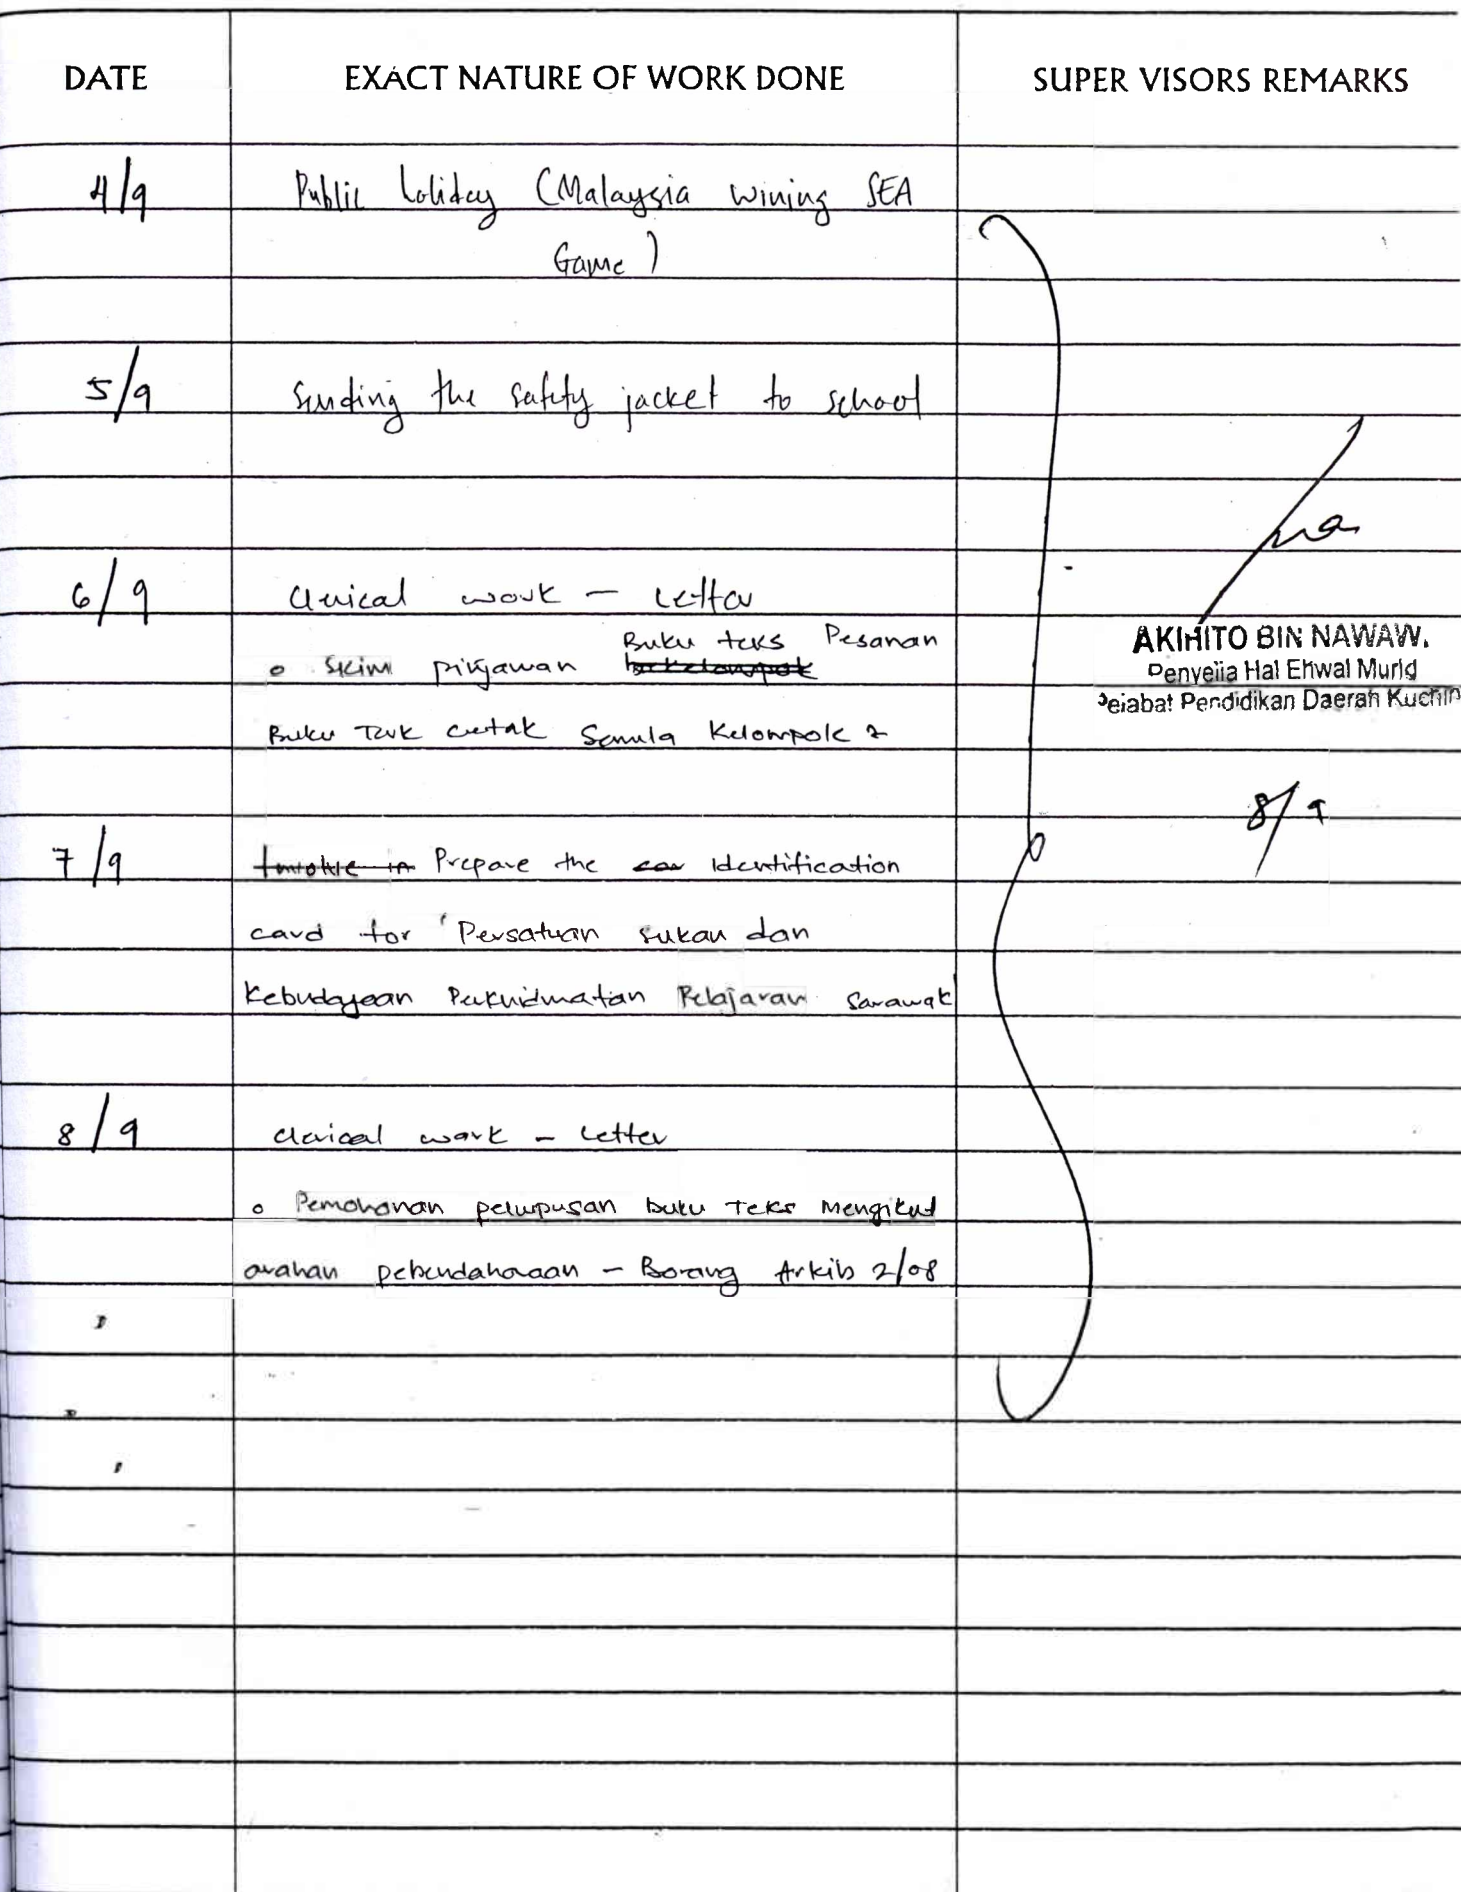 DATE EXACT NATURE OF WORK DONE SUPER VISORS REMARKS
4/9 Public holiday (Malaysia wining SEA
Game)
5/9 Sending the safety jacket to school
6/9 Clerical work - Letter
Buku teks Pesanan
o Skim pinjaman
AKIHITO BIN NAWAW.
Penyelia Hal Ehwal Murid
Pejabat Pendidikan Daerah Kuchin
Buku Teks cetak Semula Kelompok 2
8/9
7/9 Prepare the Identification
card for 'Persatuan sukan dan
Kebudayaan Perkhidmatan Pelajaran Sarawak
8/9 clerical work - Letter
o Pemohonan pelupusan buku Teks Mengikut
arahan pebendaharaan - Borang Arkib 2/08